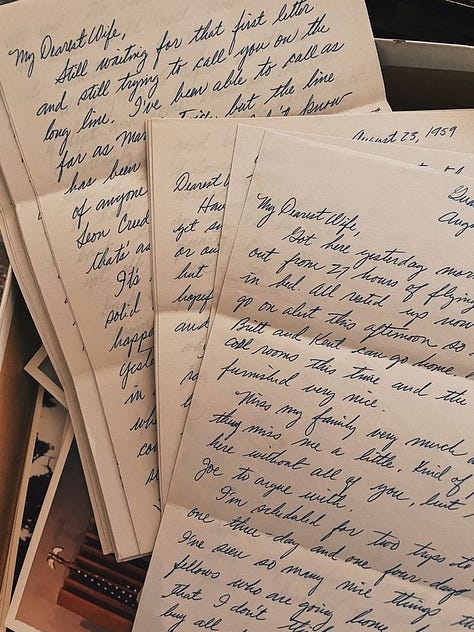 My Dearest Wife,
Still waiting for that first letter
and still trying to call you on the
long line. I've been able to call as
far as but the line
has been
of anyone
Leon
that's as
It's
solid
happe
yeste
in
wh
co
August 23, 1959
Dearest
Ha
get
or au
but
hopef
and
Augu
My Dearest Wife,
Got here yesterday mor
out from 27 hours of flying
in bed. All rested up now
go on alert this afternoon so
Britt and Kent can go home
rooms this time and the
furnished very nice.
Miss my family very much a
they miss me a little. Kind of
here without all of you, but
Joe to argue with.
I'm scheduled for two trips to
one three-day and one four-day
I've seen so many nice things
fellows who are going home
that I don't think
buy all